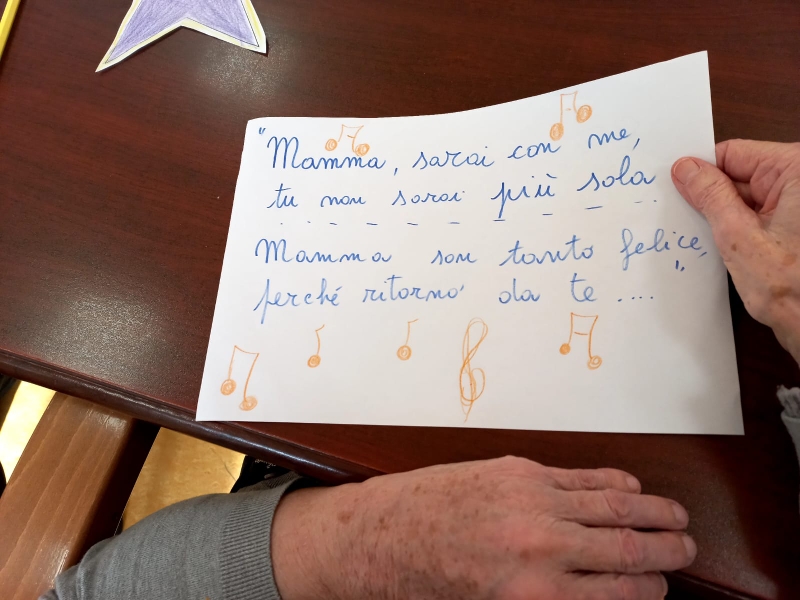 "Mamma, sarai con me,
tu non sarai più sola
Mamma son tanto felice,
perché ritorno da te ...."